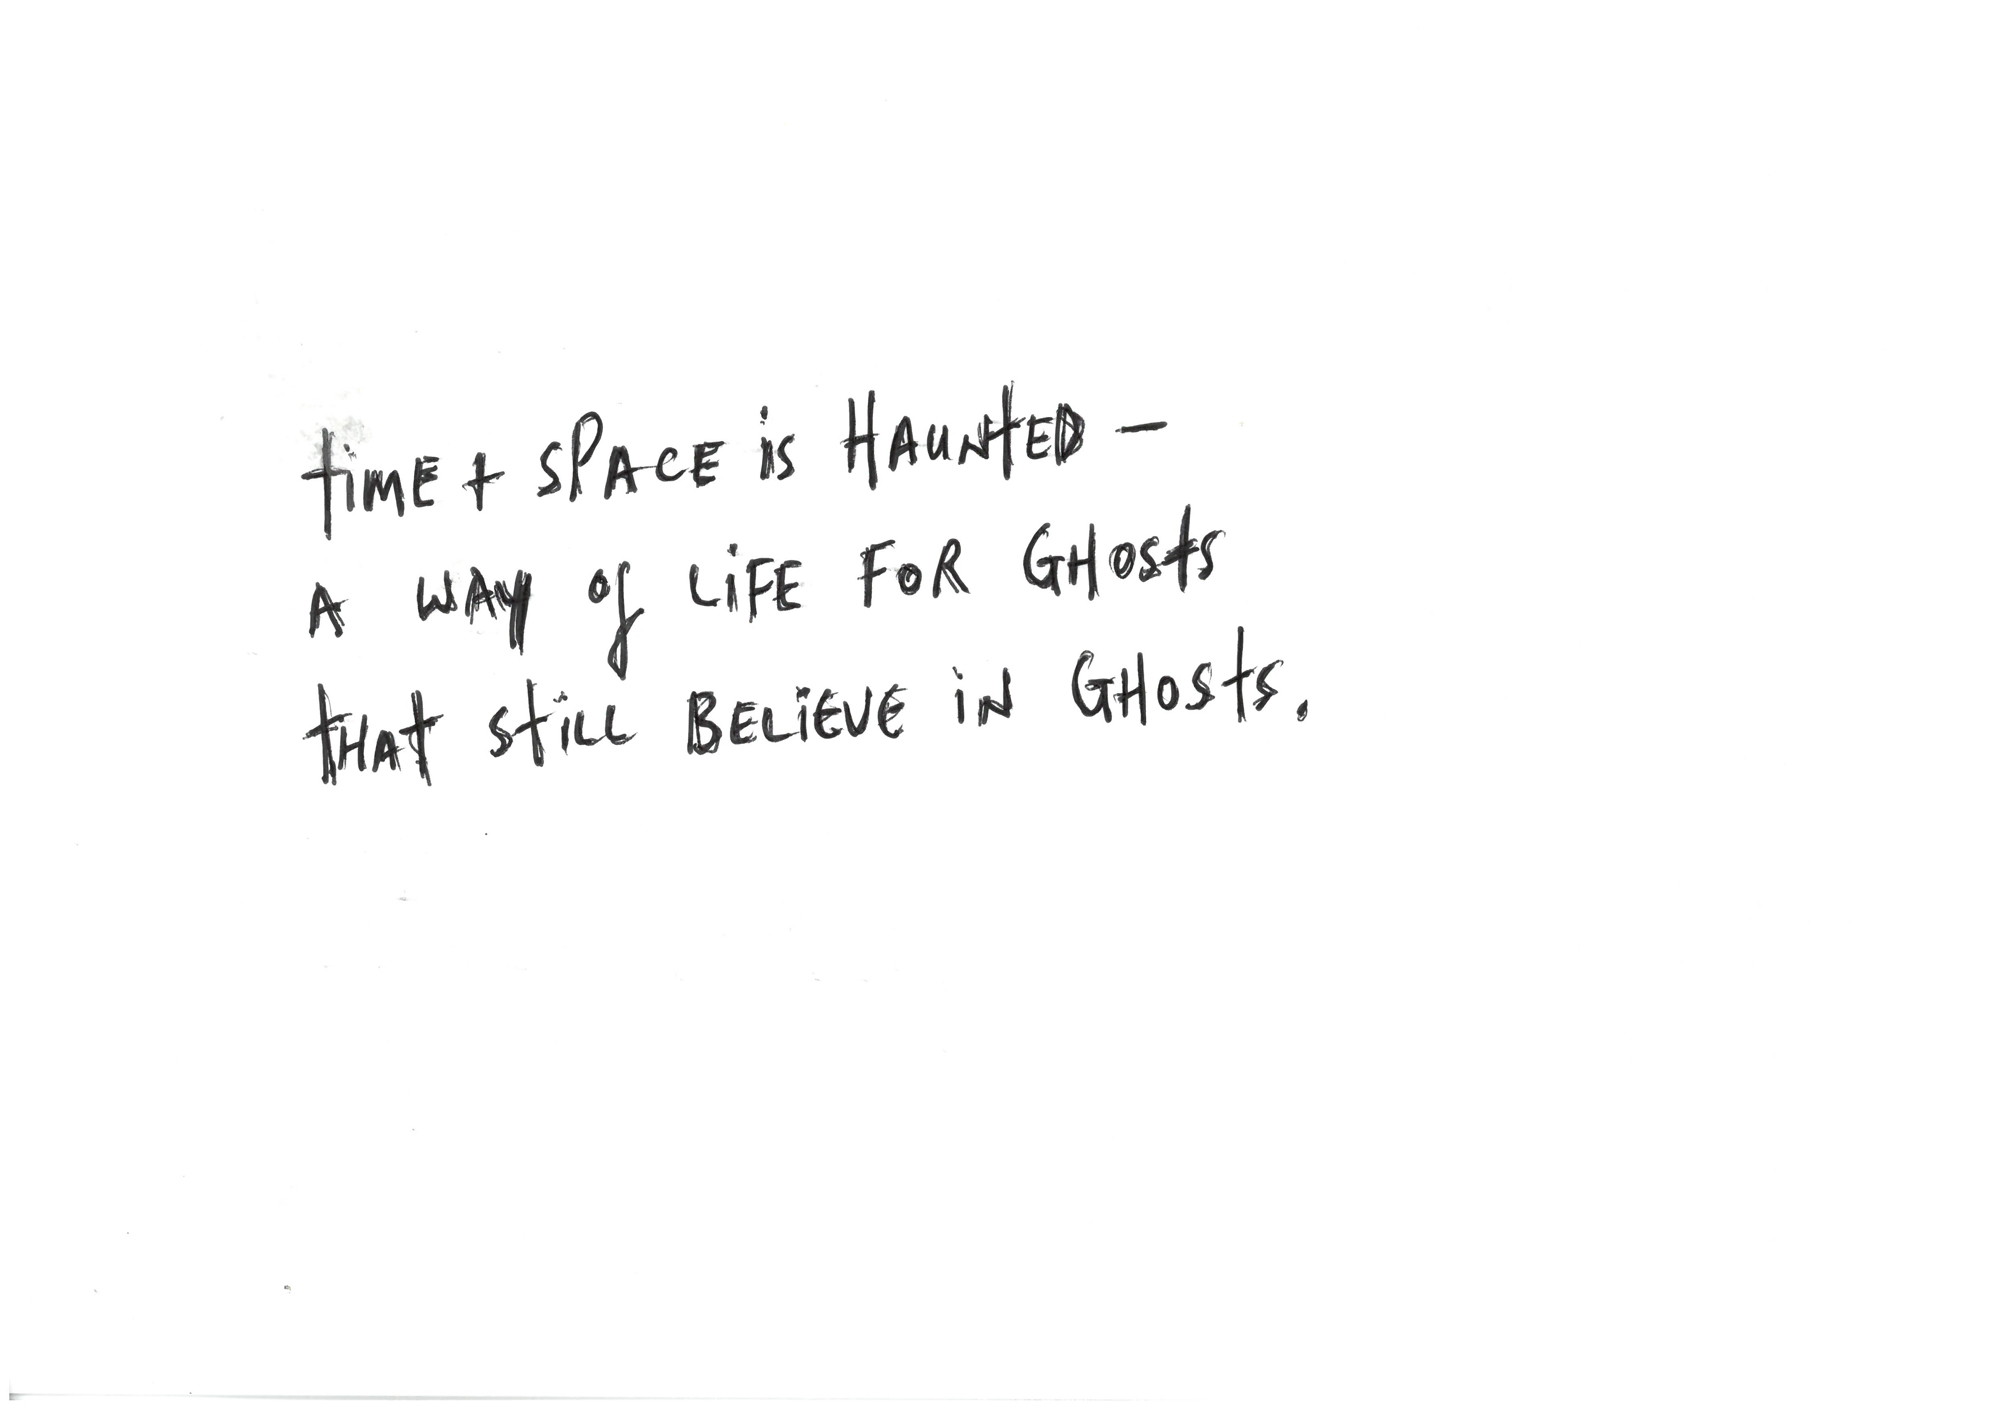 tiME + SPACE is HAUNtED —
A WAY of LiFE FOR GHOSts
tHAt StiLL BELiEVE iN GHOSts.